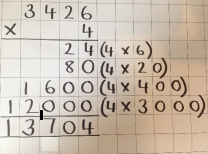 3 4 2 6
× 4
2 4 (4 × 6)
8 0 (4 × 2 0)
1 6 0 0 (4 × 4 0 0)
1 2 0 0 0 (4 × 3 0 0 0)
1 3 7 0 4